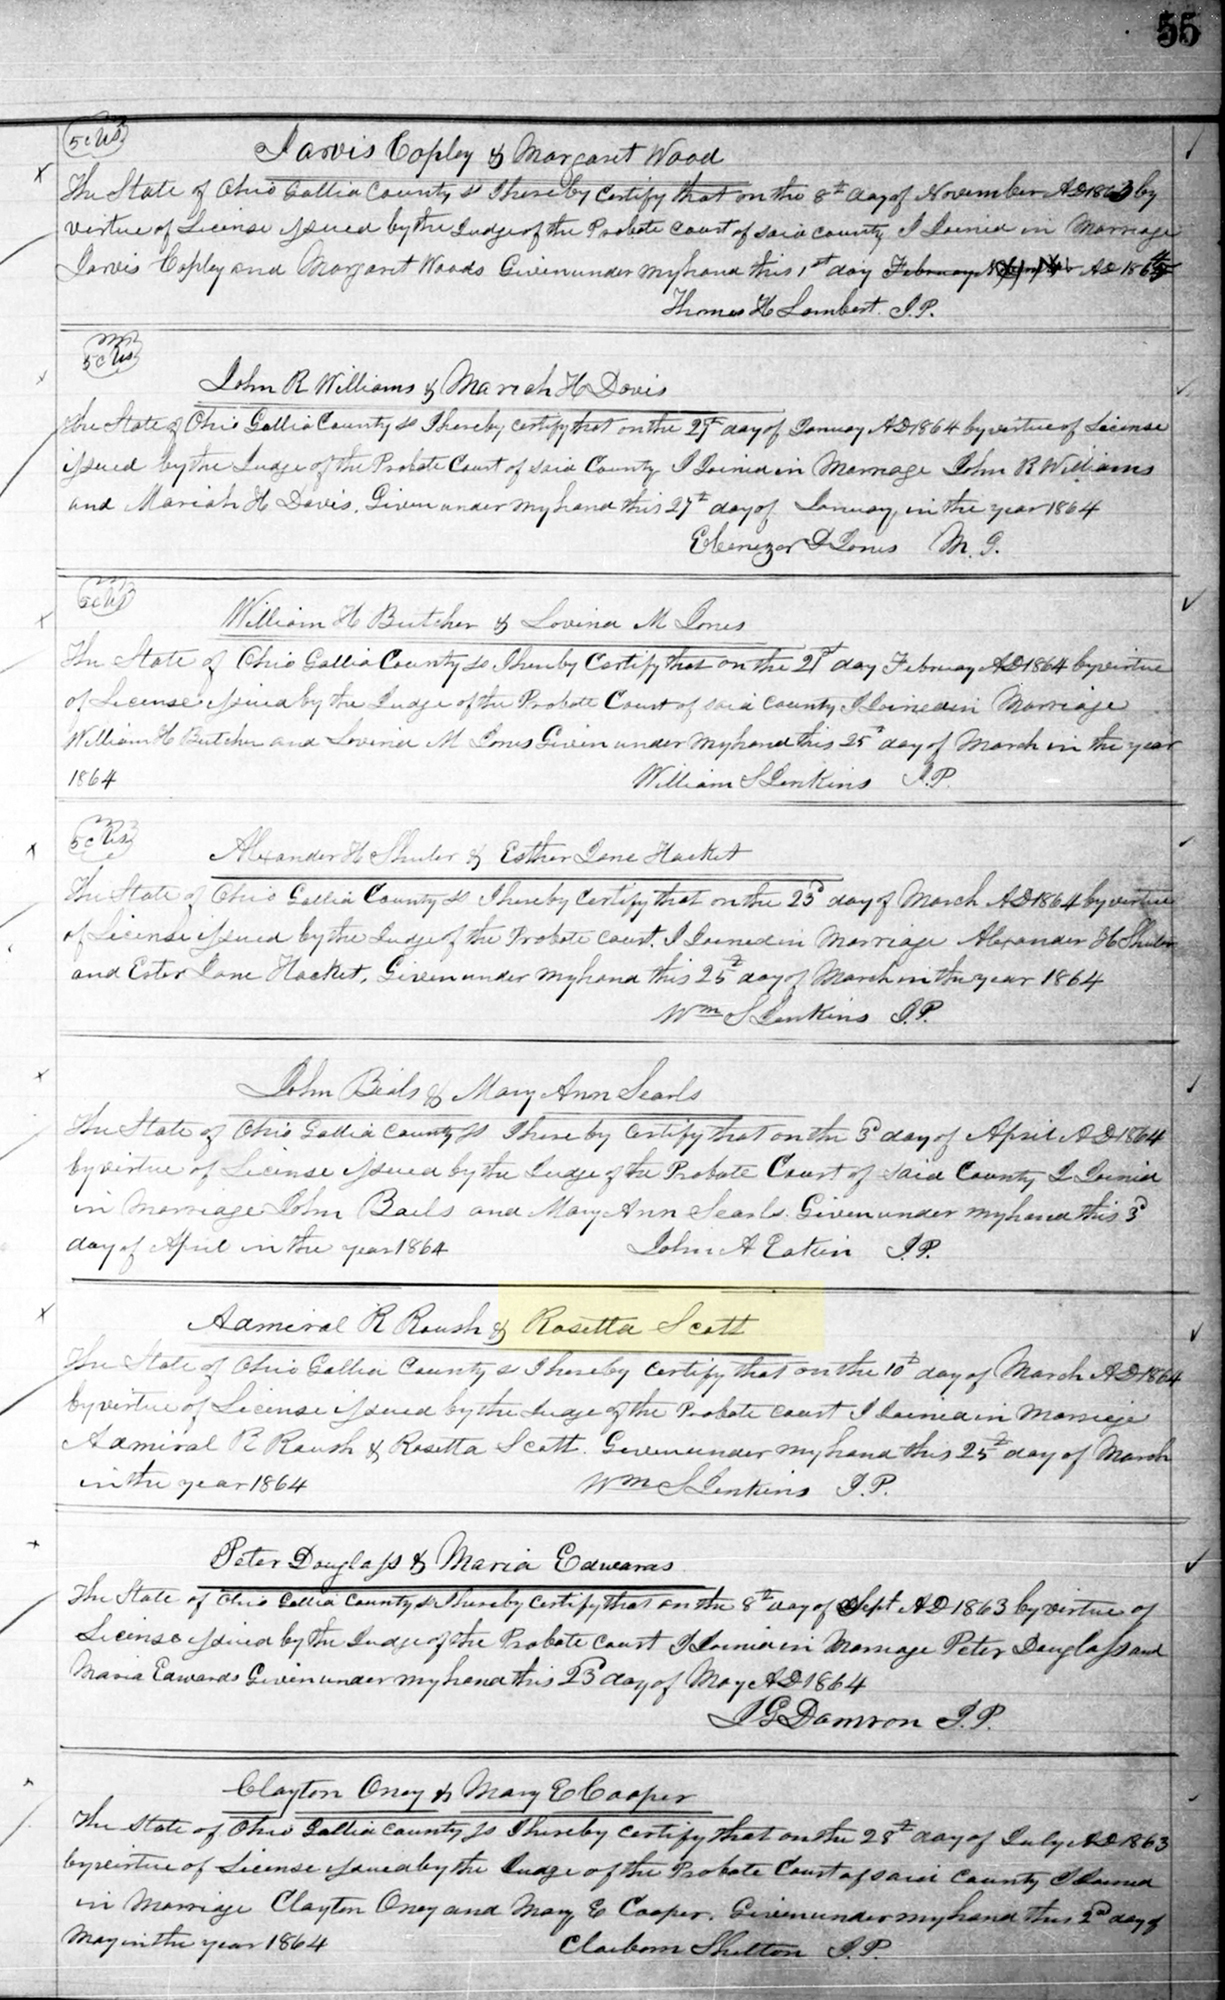 55
5c US
Jarvis Copley & Margaret Wood
The State of Ohio Gallia County ss I hereby certify that on the 8th day of November AD 1863 by
virtue of License issued by the Judge of the Probate Court of said County I Joined in Marriage
Jarvis Copley and Margaret Woods Given under my hand this 1st day February AD 186
Thomas H Lambert. J.P.
5c US
John R Williams & Mariah H Davis
The State of Ohio Gallia County ss I hereby certify that on the 27th day of January AD 1864 by virtue of License
issued by the Judge of the Probate Court of said County I Joined in Marriage John R Williams
and Mariah H Davis. Given under my hand this 27th day of January, in the year 1864
Ebenezer D Jones M. G.
5c US
William H Butcher & Lovina M Jones
The State of Ohio Gallia County ss I hereby Certify that on the 21st day February AD 1864 by virtue
of License issued by the Judge of the Probate Court of said County I Joined in Marriage
William H Butcher and Lovina M Jones Given under my hand this 25th day of March in the year
1864 William S Jenkins J.P.
5c US
Alexander H Shuler & Esther Jane Hacket
The State of Ohio Gallia County ss I hereby Certify that on the 23d day of March AD 1864 by virtue
of License issued by the Judge of the Probate Court. I Joined in Marriage Alexander H Shuler
and Ester Jane Hacket, Given under my hand this 25th day of March in the year 1864
Wm S Jenkins J.P.
John Beals & Mary Ann Searls
The State of Ohio Gallia County ss I hereby Certify that on the 3d day of April AD 1864
by virtue of License issued by the Judge of the Probate Court of said County I Joined
in Marriage John Bails and Mary Ann Searls. Given under my hand this 3d
day of April in the year 1864 John A Eakin J.P.
Admiral R Roush & Rosetta Scott
The State of Ohio Gallia County ss I hereby Certify that on the 10th day of March AD 1864
by virtue of License issued by the Judge of the Probate Court I Joined in Marriage
Admiral R Roush & Rosetta Scott. Given under my hand this 25th day of March
in the year 1864 Wm S Jenkins J.P.
Peter Douglass & Maria Edwards
The State of Ohio Gallia County ss I hereby Certify that on the 8th day of Sept AD 1863 by virtue of
License issued by the Judge of the Probate Court I Joined in Marriage Peter Douglass and
Maria Edwards Given under my hand this 23d day of May AD 1864
J G Damron J.P.
Clayton Oney & Mary E Cooper
The State of Ohio Gallia County ss I hereby certify that on the 28th day of July AD 1863
by virtue of License issued by the Judge of the Probate Court of said County I Joined
in Marriage Clayton Oney and Mary E Cooper. Given under my hand this 2nd day of
May in the year 1864 Claiborn Shelton J.P.